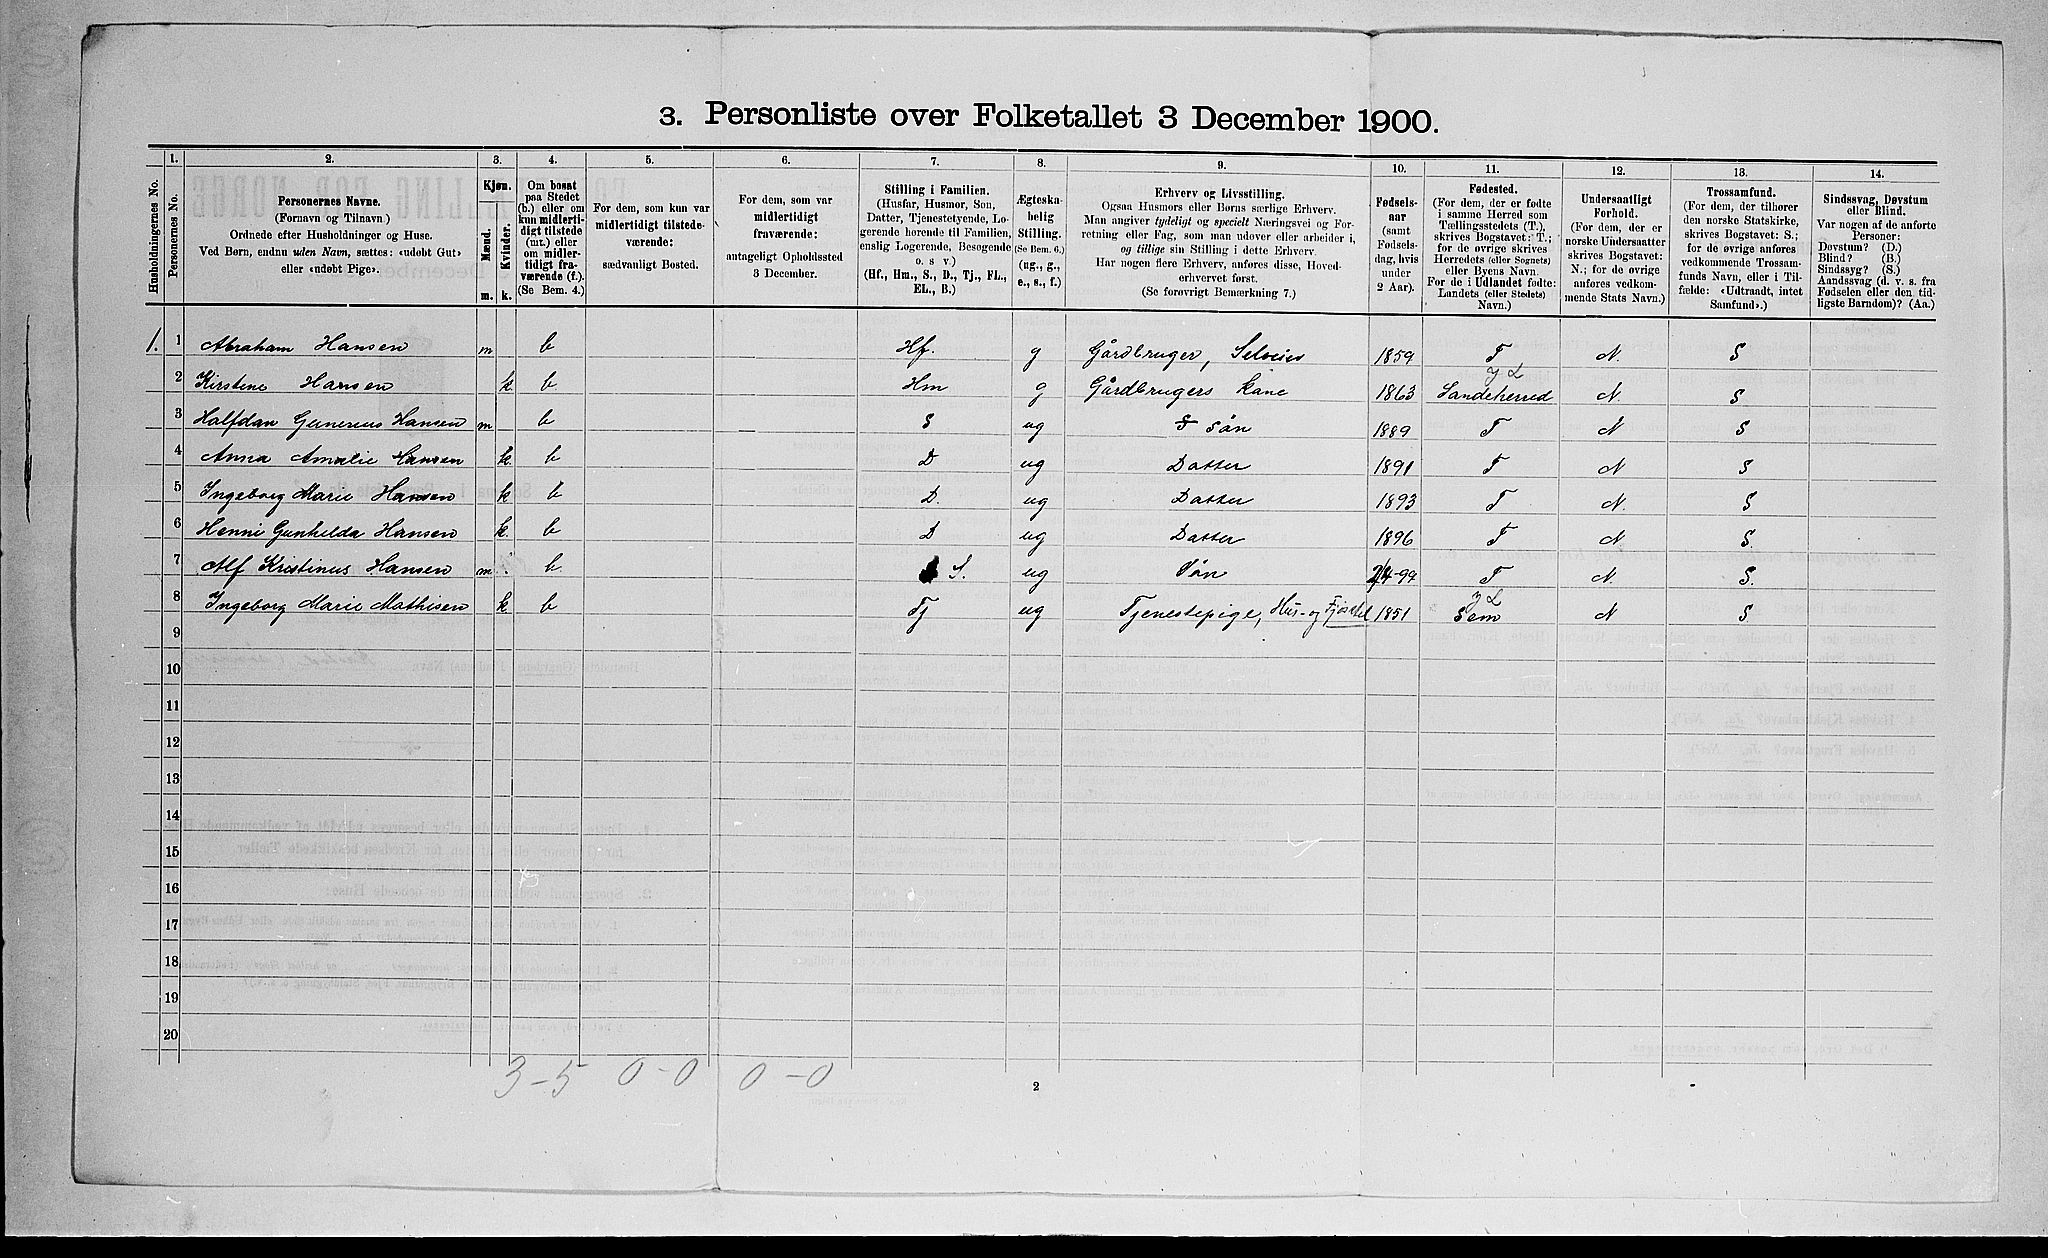 3. Personliste over Folketallet 3 December 1900.
Husholdningernes No.
1.
Personernes No.
2.
Personernes Navne.
(Fornavn og Tilnavn.)
Ordnede efter Husholdninger og Huse.
Ved Børn, endnu uden Navn, sættes: «udøbt Gut»
eller «udøbt Pige».
3.
Kjøn.
Mænd.
Kvinder.
m. k.
4.
Om bosat
paa Stedet
(b.) eller om
kun midlerti-
digt tilstede
(mt.) eller
om midler-
tidigt fra-
værende (f.).
(Se Bem. 4.)
5.
For dem, som kun var
midlertidigt tilstede-
værende:
sædvanligt Bosted.
6.
For dem, som var
midlertidigt
fraværende:
antageligt Opholdssted
3 December.
7.
Stilling i Familien.
(Husfar, Husmor, Søn,
Datter, Tjenestetyende, Lo-
gerende hørende til Familien,
enslig Logerende, Besøgende
o. s v.)
(Hf., Hm., S., D., Tj., FL.,
EL., B.)
8.
Ægteska-
belig
Stilling.
(Se Bem. 6.)
(ug., g.,
e., s., f.)
9.
Erhverv og Livsstilling.
Ogsaa Husmors eller Børns særlige Erhverv.
Man angiver tydeligt og specielt Næringsvei og For-
retning eller Fag, som man udøver eller arbeider i,
og tillige sin Stilling i dette Erhverv.
Har nogen flere Erhverv, anføres disse, Hoved-
erhvervet først.
(Se forøvrigt Bemærkning 7.)
10.
Fødsels-
aar
(samt
Fødsels-
dag, hvis
under
2 Aar).
11.
Fødested.
(For dem, der er fødte
i samme Herred som
Tællingsstedets (T.),
skrives Bogstavet: T.;
for de øvrige skrives
Herredets (eller Sognets)
eller Byens Navn.
For de i Udlandet fødte:
Landets (eller Stedets)
Navn.)
12.
Undersaatligt
Forhold.
(For dem, der er
norske Undersaatter
skrives Bogstavet:
N.; for de øvrige
anføres vedkom-
mende Stats Navn.)
13.
Trossamfund.
(For dem, der tilhører
den norske Statskirke,
skrives Bogstavet: S.;
for de øvrige anføres
vedkommende Trossam-
funds Navn, eller i Til-
fælde: «Udtraadt, intet
Samfund».)
14.
Sindssvag, Døvstum
eller Blind.
Var nogen af de anførte
Personer:
Døvstum? (D.)
Blind? (B.)
Sindssyg? (S.)
Aandssvag (d. v. s. fra
Fødselen eller den tid-
ligste Barndom)? (Aa.)
1. 1 Abraham Hansen m b Hf. g Gårdbruger, Selveier 1859 T N. S
2 Kirstine Hansen k b Hm g Gårdbrugers kane 1863 Sandeherred N. S
3 Halfdan Gunerius Hansen m b S ug Søn 1889 T N S
4 Anna Amalie Hansen k b D ug Datter 1891 T N S
5 Ingeborg Marie Hansen k b D. ug Datter 1893 T N. S
6 Henni Gunhilda Hansen k. b D ug Datter 1896 T N S.
7 Alf Kristinus Hansen m b S. ug Søn 2/4-99 T N. S.
8 Ingeborg Marie Mathisen k b Tj ug Tjenestepige, Hus- og Fjøsstel 1851 Sem N S
9
10
11
12
13
14
15
16
17
18
19
20
3-5 0-0 0-0
2